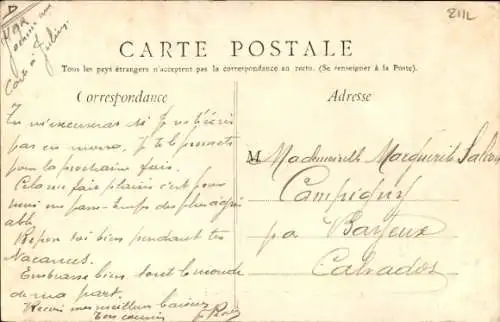 2111
CARTE POSTALE
Tous les pays étrangers n'acceptent pas la correspondance au recto. (Se renseigner à la Poste).
Correspondance
Adresse
Tu m'excuseras si je t'écris
pas en
pour la prochaine fois.
Cela me fais plaisir c'est pour
moi un passe-temps des plus agré
able
Repose toi bien pendant tes
Vacances.
Embrasse bien tout le monde
de ma part.
Reçois mes meilleurs baisers
Ton cousin
M Mademoiselle Marguerite
Campigny
pa Bayeux
Calvados